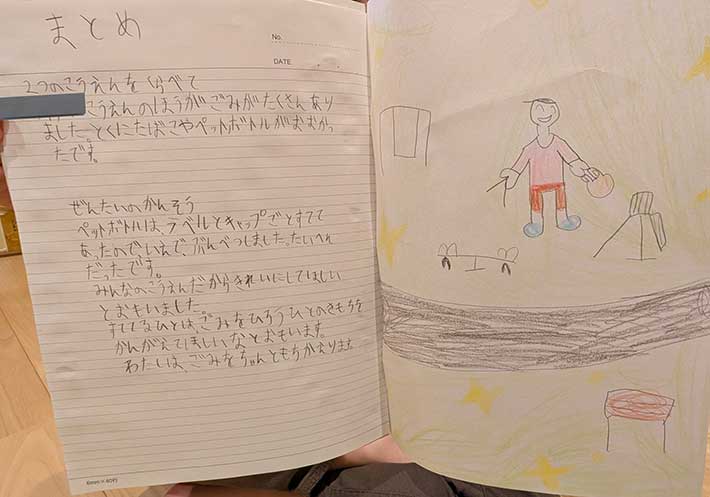 まとめ
No.
DATE
2つのこうえんをくらべて
こうえんのほうがごみがたくさんあり
ました。とくにたばこやペットボトルがおおかっ
たです。
ぜんたいのかんそう
ペットボトルは、ラベルとキャップごとすてて
あったので、いえで、ぶんべつしました。たいへん
だったです。
みんなのこうえんだからきれいにしてほしい
とおもいました。
すててるひとは、ごみをひろうひとのきもちを
かんがえてほしいなとおもいます。
わたしは、ごみをちゃんともちかえります。
6mm×40行